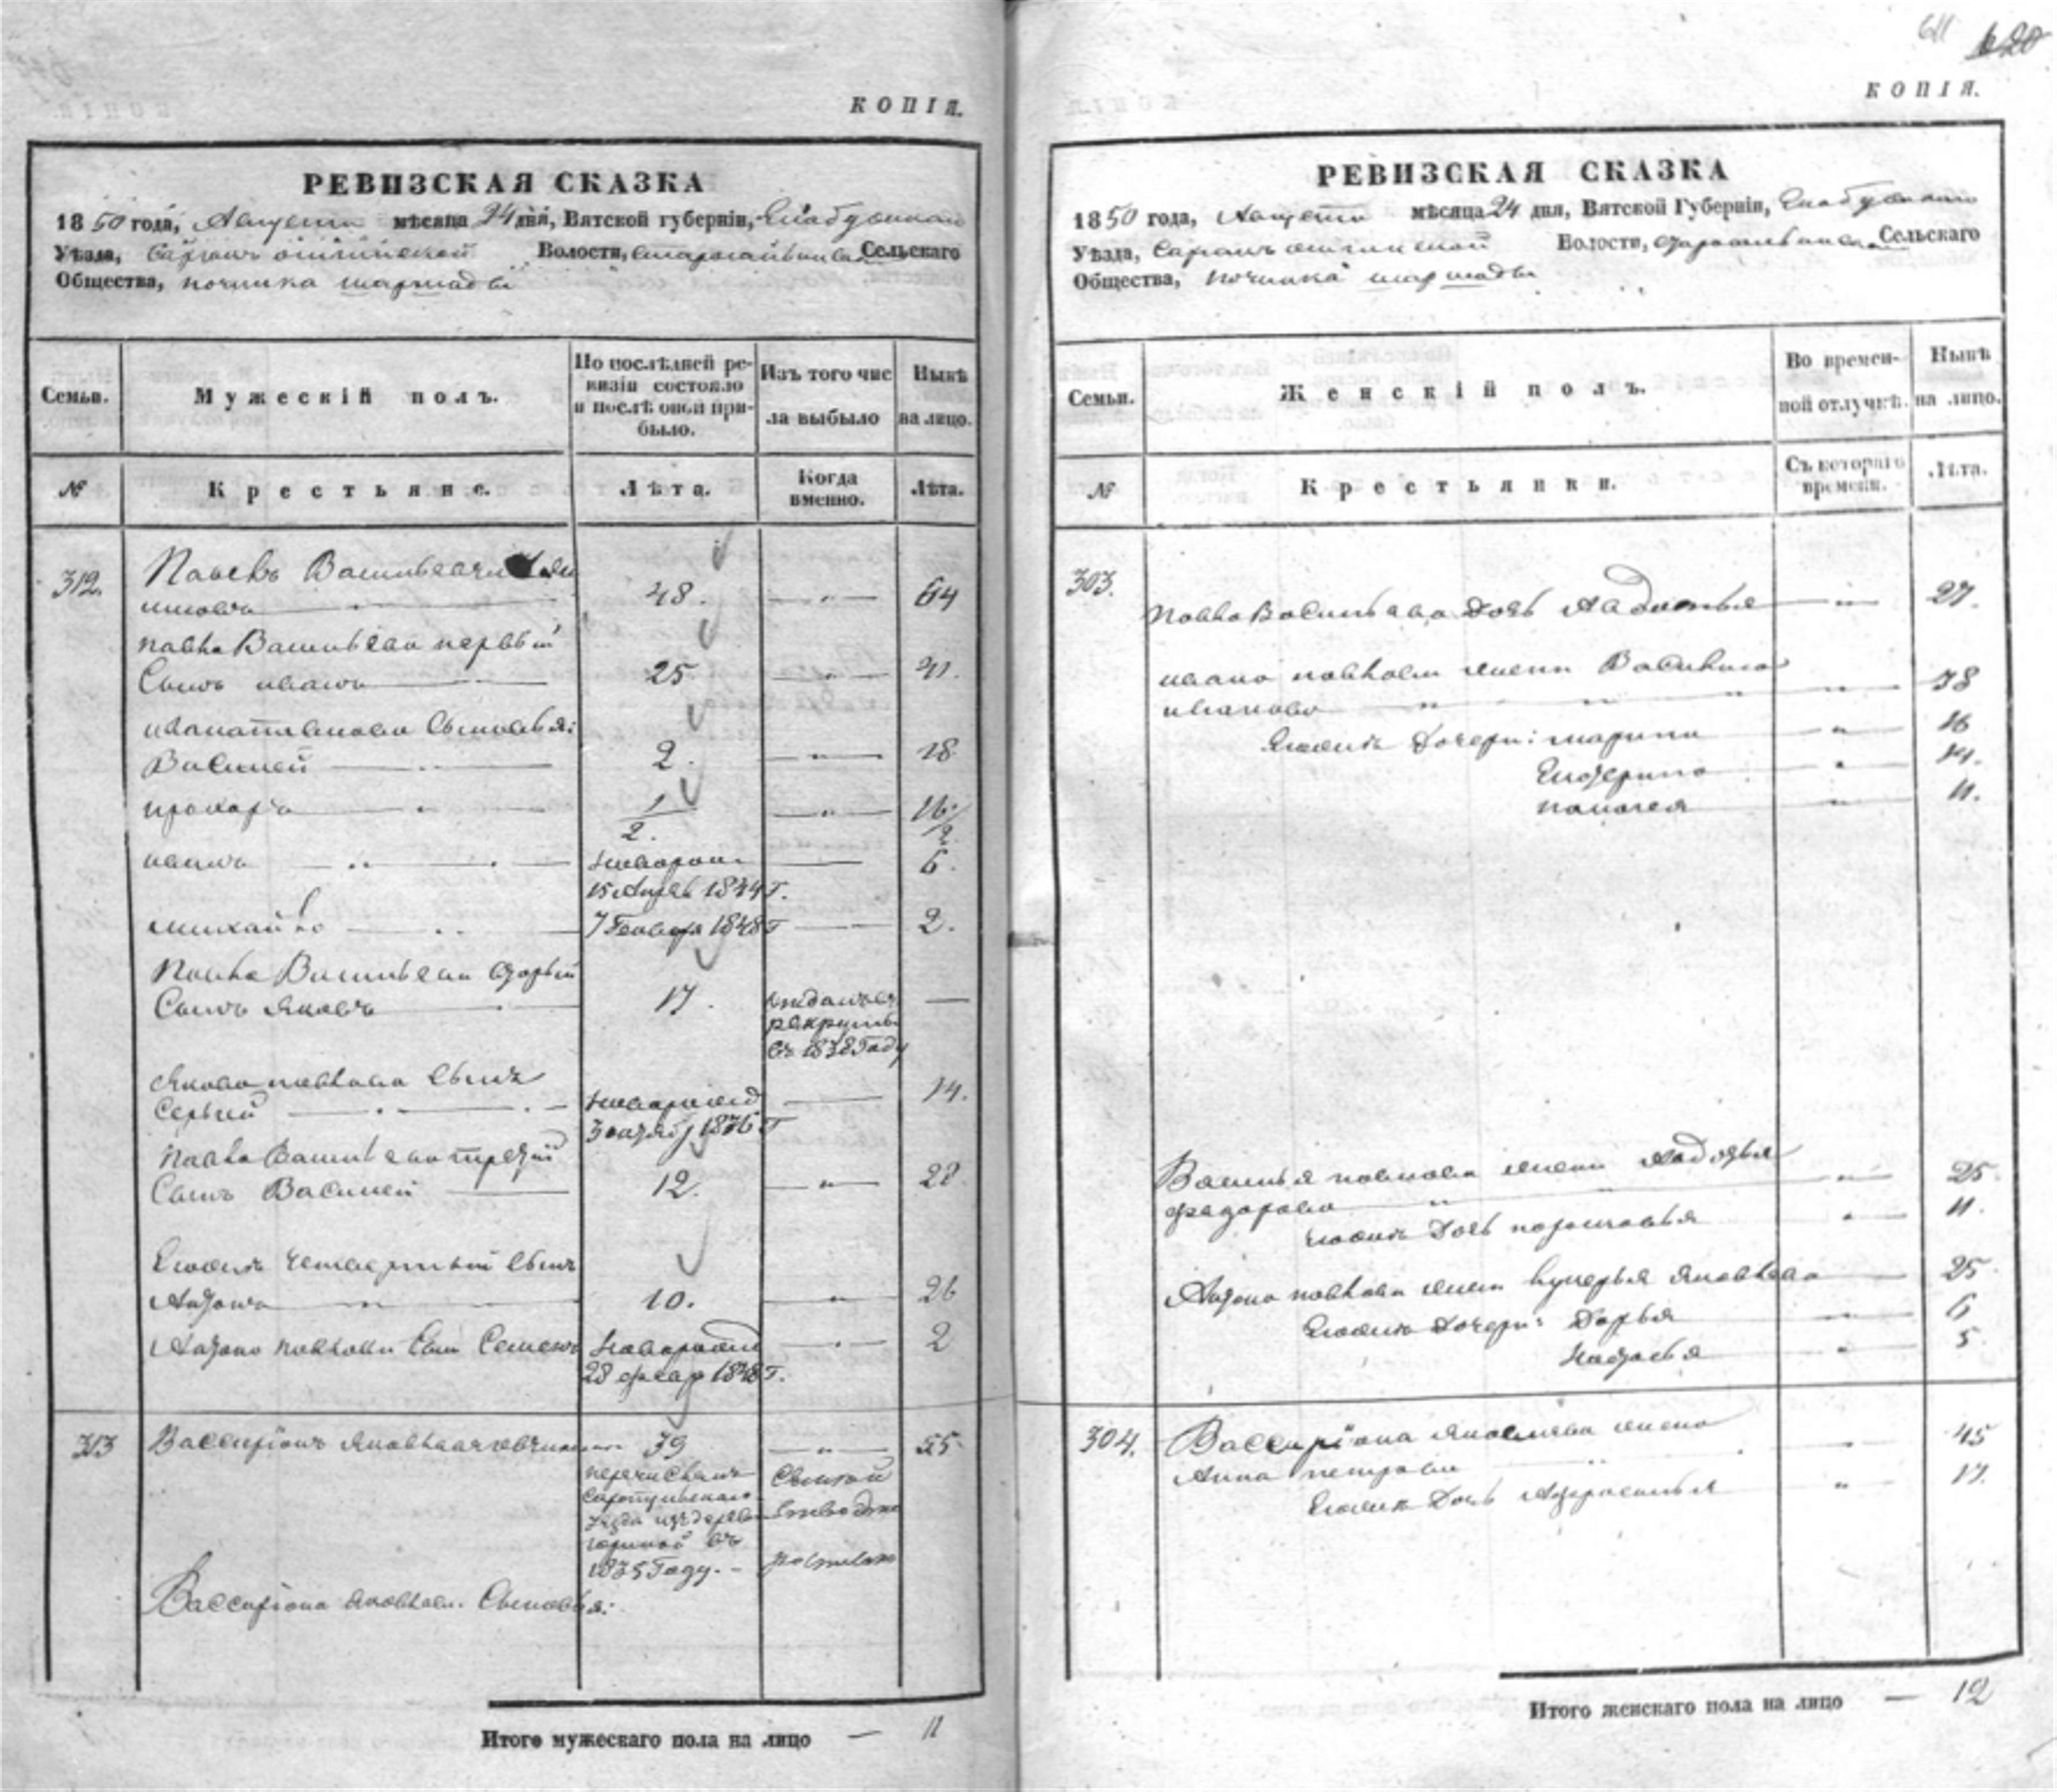 611 620
КОПІЯ.
РЕВИЗСКАЯ СКАЗКА
1850 года, Августа мѣсяца 24 дня, Вятской губерніи, Елабужскаго
Уѣзда, Волости, Сельскаго
Общества, починка шаршады
Семьи.
Мужескій полъ.
По послѣдней ре-
визіи состояло
и послѣ оной при-
было.
Изъ того чис
ла выбыло
Нынѣ
на лицо.
№
Крестьяне.
Лѣта.
Когда
именно.
Лѣта.
312.
Павелъ Васильевъ
48. „ 64
Павла Васильева первый
Сынъ иванъ 25 „ 41.
ивана павлова Сыновья:
Василей 2. „ 18.
прохоръ 1/2. „ 16 1/2
иванъ новорож. 6.
15 Апрѣля 1844 г.
михайло 7 Генваря 1848 г 2.
Павла Васильева вторый
Сынъ яковъ 17. отданъ въ —
рекруты
въ 1838 году
якова павлова сынъ
Сергей новорожд 14.
3 октяб 1836 г
Павла Васильева третій
Сынъ Василей 12. „ 28.
Его же четвертый сынъ
Антонъ 10. „ 26
Антона павлова Сын Семенъ новорожд 2
28 февр 1848 г.
313 Вассиріонъ яковлевъ 39 „ 55
перечисленъ
Сарапульскаго
уѣзда изъ дерев
въ
1835 Году.
Вассиріона яковлева Сыновья:
Итого мужескаго пола на лицо — 11
КОПІЯ.
РЕВИЗСКАЯ СКАЗКА
1850 года, Августа мѣсяца 24 дня, Вятской Губерніи, Елабужскаго
Уѣзда, Волости, Сельскаго
Общества, починка шаршады
Семьи.
Женскій полъ.
Во времен-
ной отлучкѣ.
Нынѣ
на лицо.
№
Крестьянки.
Съ котораго
времени.
Лѣта.
303.
Павла Васильева дочь Авдотья „ 27.
ивана павлова жена Василиса
иванова „ 38
Его же дочери: марина „ 16
Катерина „ 14.
палагея „ 11.
Василья павлова жена Авдотья
федорова „ 25
его же дочь порасковья „ 11.
Антона павлова жена лукерья яковлева 25
Его же дочери: Дарья 6
Наталья 5
304. Вассиріона яковлева жена 45
Анна петрова
Его же дочь „ 17.
Итого женскаго пола на лицо — 12